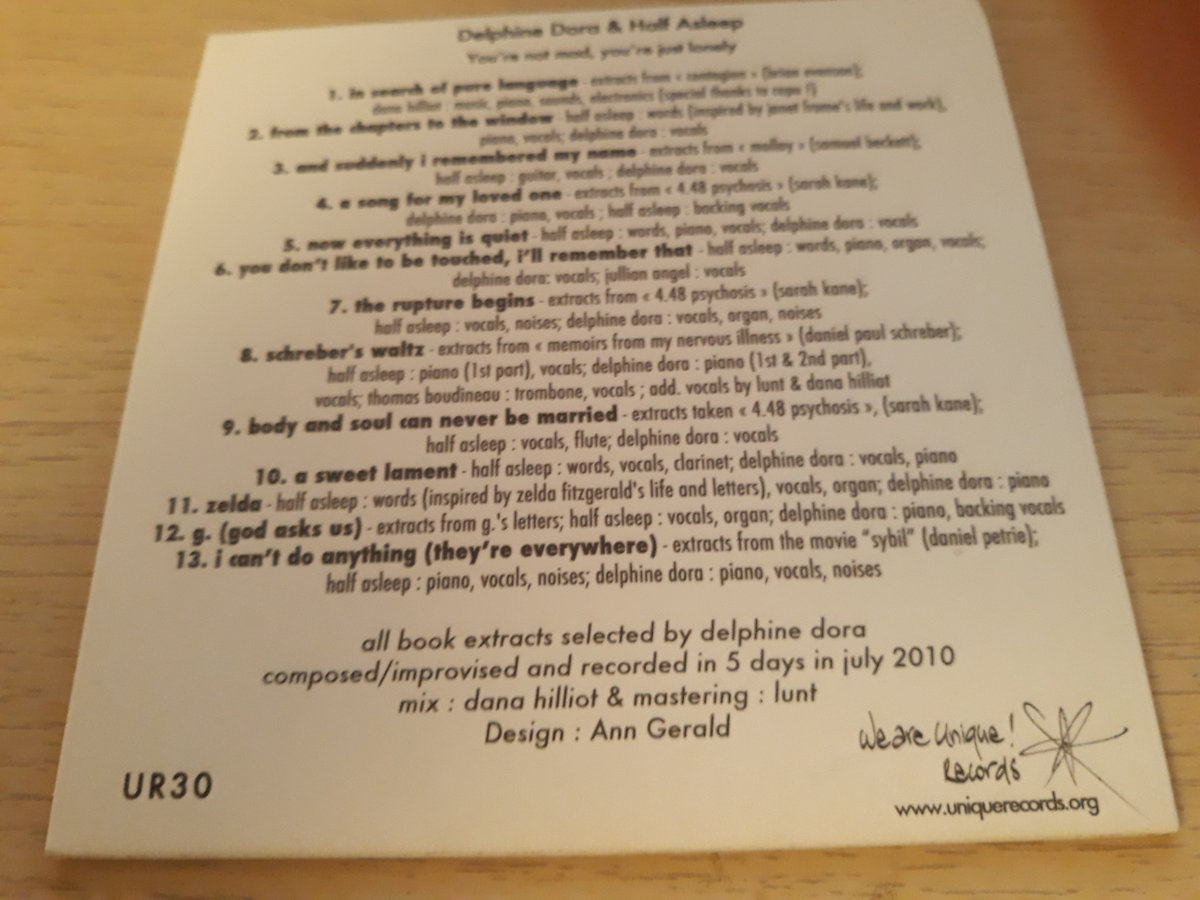 Delphine Dora & Half Asleep
You're not mad, you're just lonely
1. in search of pure language - extracts from « contagion » (brian evenson);
dana hilliot : music, piano, sounds, electronics (special thanks to capu !)
2. from the chapters to the window - half asleep : words (inspired by janet frame's life and work),
piano, vocals; delphine dora : vocals
3. and suddenly i remembered my name - extracts from « molloy » (samuel beckett);
half asleep : guitar, vocals ; delphine dora : vocals
4. a song for my loved one - extracts from « 4.48 psychosis » (sarah kane);
delphine dora : piano, vocals ; half asleep : backing vocals
5. now everything is quiet - half asleep : words, piano, vocals; delphine dora : vocals
6. you don't like to be touched, i'll remember that - half asleep : words, piano, organ, vocals;
delphine dora: vocals; jullian angel : vocals
7. the rupture begins - extracts from « 4.48 psychosis » (sarah kane);
half asleep : vocals, noises; delphine dora : vocals, organ, noises
8. schreber's waltz - extracts from « memoirs from my nervous illness » (daniel paul schreber);
half asleep : piano (1st part), vocals; delphine dora : piano (1st & 2nd part),
vocals; thomas boudineau : trombone, vocals ; add. vocals by lunt & dana hilliot
9. body and soul can never be married - extracts taken « 4.48 psychosis », (sarah kane);
half asleep : vocals, flute; delphine dora : vocals
10. a sweet lament - half asleep : words, vocals, clarinet; delphine dora : vocals, piano
11. zelda - half asleep : words (inspired by zelda fitzgerald's life and letters), vocals, organ; delphine dora : piano
12. g. (god asks us) - extracts from g.'s letters; half asleep : vocals, organ; delphine dora : piano, backing vocals
13. i can't do anything (they're everywhere) - extracts from the movie "sybil" (daniel petrie);
half asleep : piano, vocals, noises; delphine dora : piano, vocals, noises
all book extracts selected by delphine dora
composed/improvised and recorded in 5 days in july 2010
mix : dana hilliot & mastering : lunt
Design : Ann Gerald
UR30
We are Unique!
Records
www.uniquerecords.org